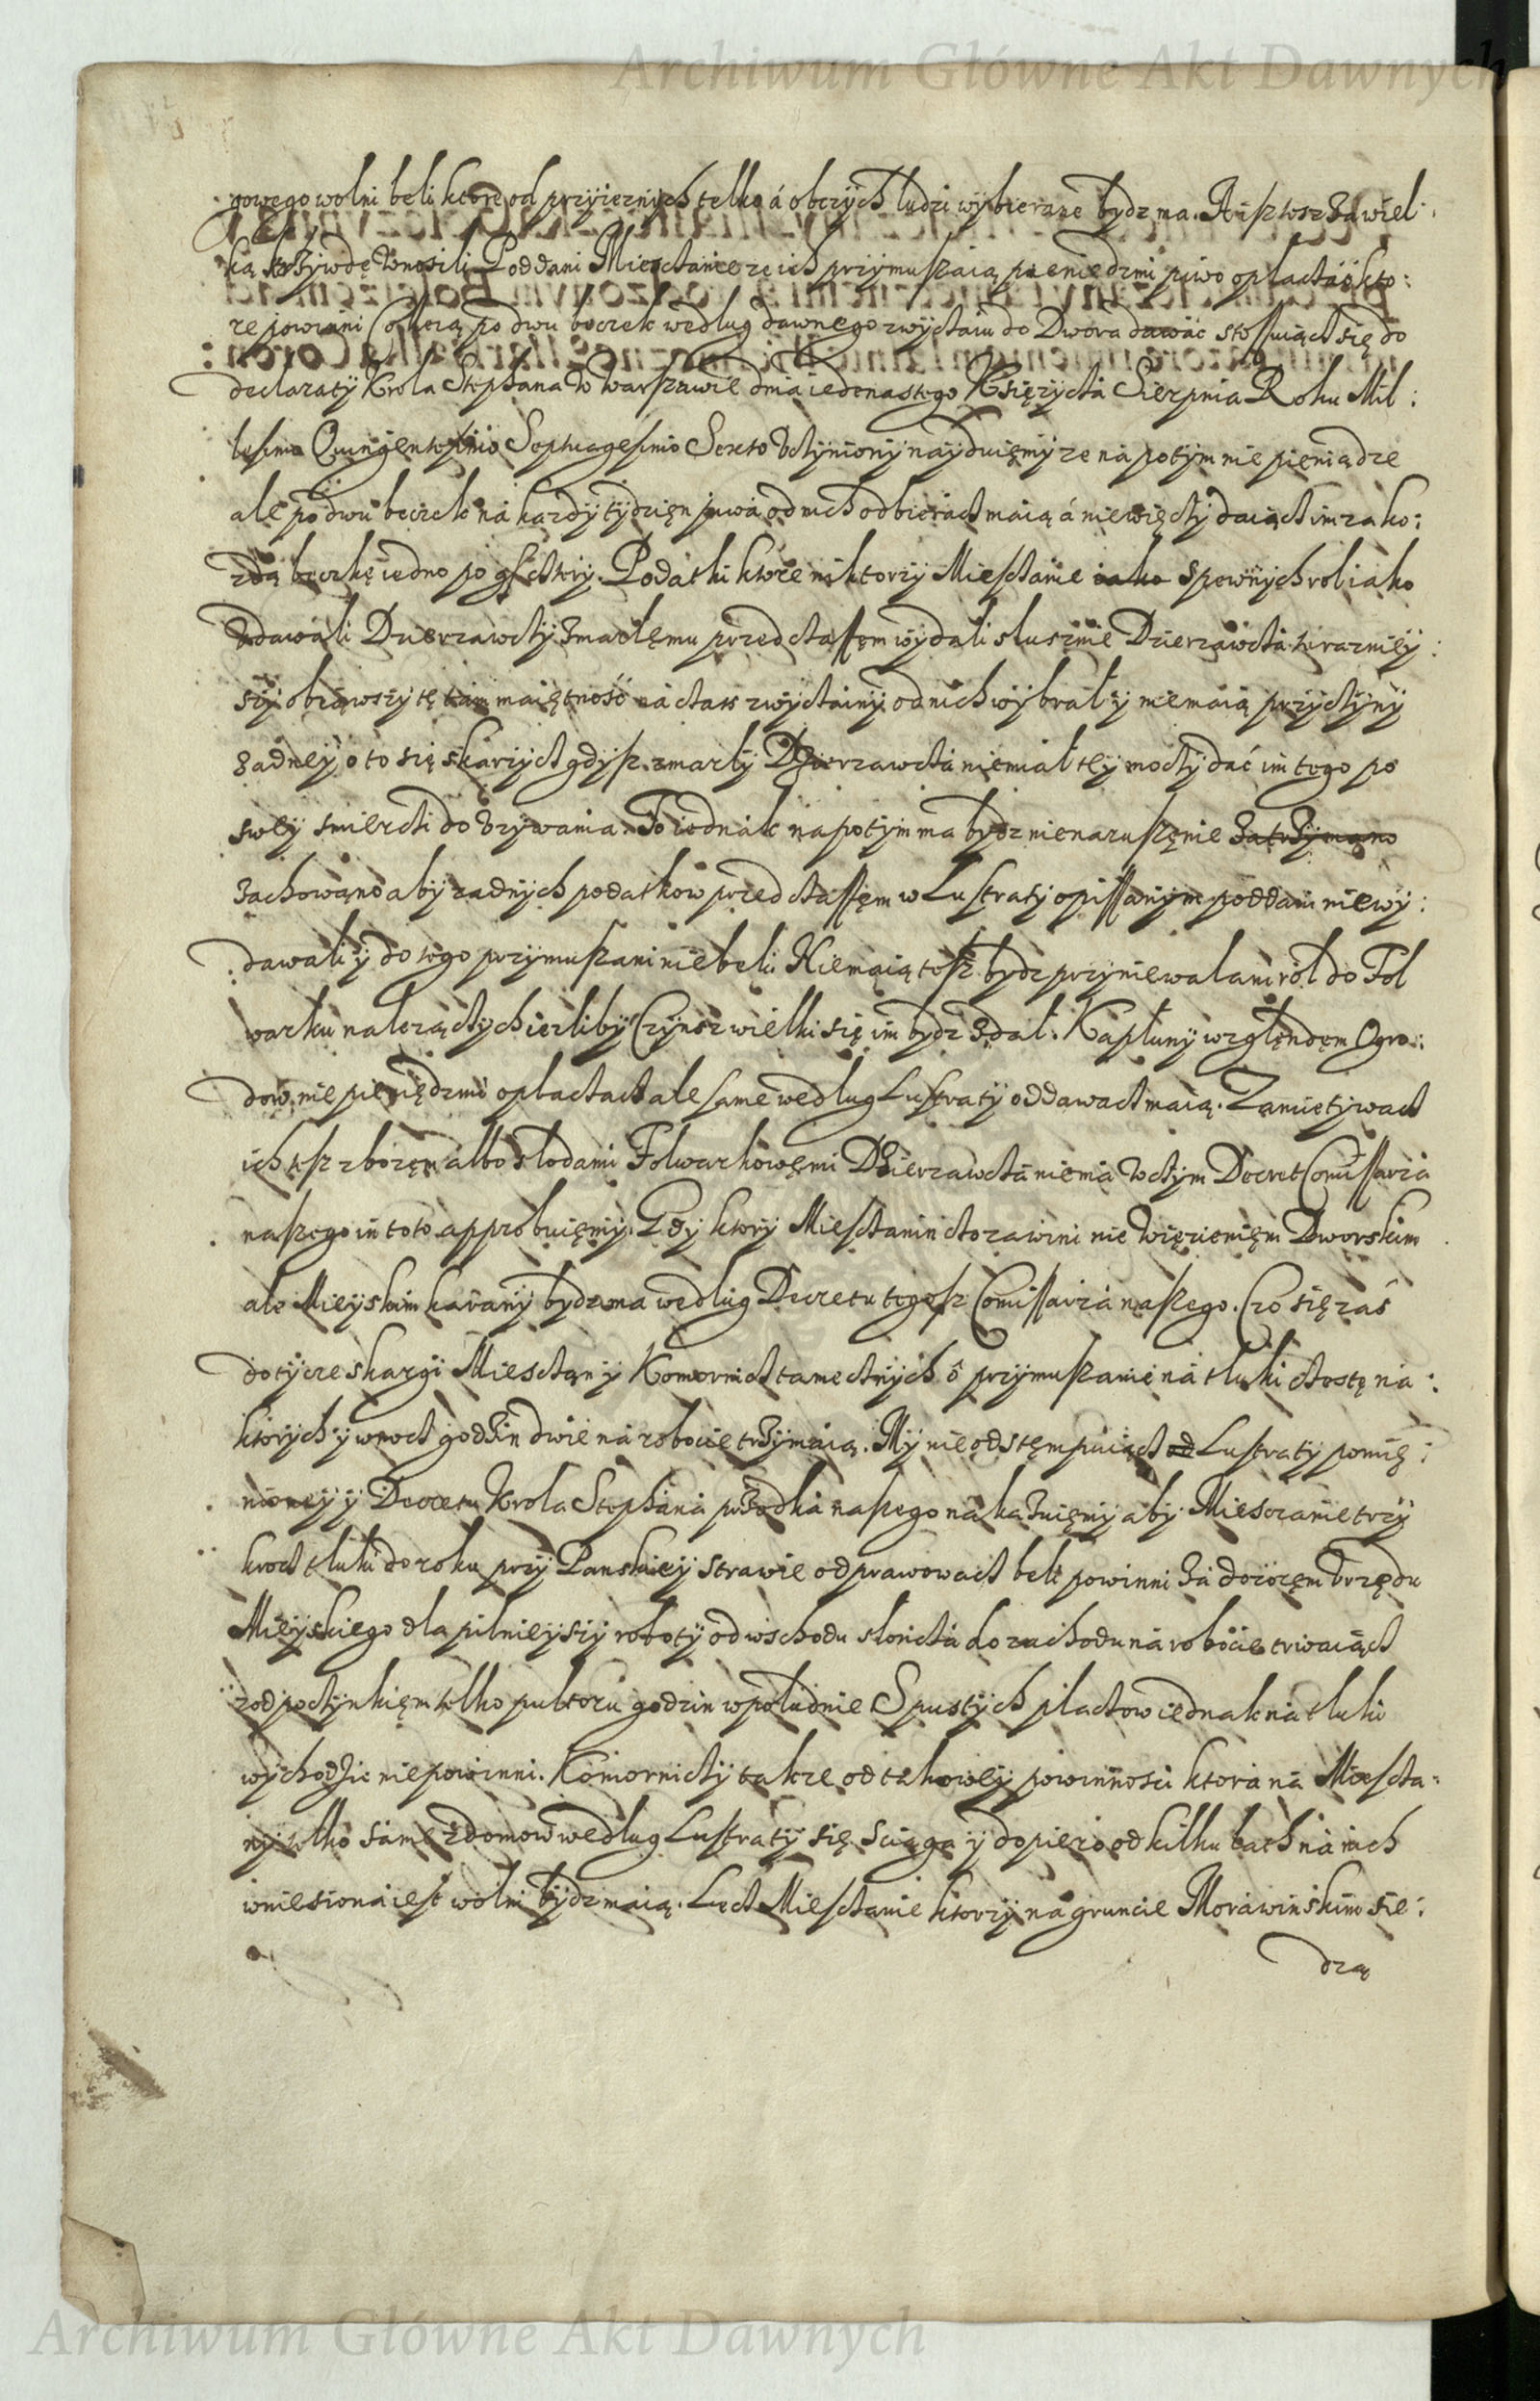 Archiwum Główne Akt Dawnych
gowego wolni beli ktore od przyieznych telko á obczych ludzi wybierane bydz ma. A isz tosz za wiel:
ką krzywdę wnosili Poddani Miesctanie ze ich przymuszaią pieniedzmi piwo opłactać kto:
re powinni po dwu beczek według dawnego zwyctaiu do Dwora dawać stossuiąct się do
declaraty Krola Stephana w Warszawie dnia iedenastego Księżycta Sierpnia Roku Mil:
lesimo Quingentesimo Septuagesimo Sexto vctyniony nayduięmy ze na potym nie pieniądze
ale po dwu beczek na kazdy tydzięn piwa od nich odbieract maią á niewięcty daiąct im za ko:
zdą beczkę iedno po Podatki ktore niktorzy Miesctanie iako s pewnych rol iako
zdawali Dzierzawcty zmarłemu przed ctassem wydali slusznie Dzierzawcta teraznieÿ:
szy obiąwszy tę tám maiętność na ctas zwyctainy od nich wybrał y niemaią przyctyny
zadney o to się skarzyct gdysz zmarły Dzierzawcta niemiał tey mocty dać im tego po
swey smiercti do vzywania. To iednak na potym ma bydz nienaruszęnie zatrzymano
zachowano aby zadnych podatkow przed ctassęm w Lustraty opissanym poddani niewy:
dawali y do tego przymuszani niebeli Niemaią tesz bydz przyniewalani rol do Fol
warku nalezącтych iezliby Czynsz wielki się im bydz zdał. Kapłuny względęm Ogro:
dow nie pieniędzmi opłactact ale same według Lustraty oddawact maią. Zamietywact
ich tesz zbozęm albo słodami Folwarkowęmi Dzierzawcta niema w ctym Decret Comissarza
naszego in toto approbuięmy. Gdy ktory Miesctanin cto zawini nie więzienięm Dworskim
ale Mieyskim karany bydz ma według Decretu tegosz Comissarza naszego. Czo się zas
dotycze skargi Miesctan y Komornict tamectnych o przymuszanie na tłuki ctestę na:
ktorych y w noct godzin dwie na robocie trzymaią. My nie odstempuiąct od Lustraty pomię:
nioney y Decretu Krola Stephana przodka naszego nakazuięmy aby Miesczanie trzy
kroct tłuki do roku przy Panskiey strawie odprawowact beli powinni za dozoręm Vrzędu
Mieyskiego dla pilnieyszy roboty od wschodu słońcta do zachodu na robocie trwaiąct
z odpoctynkięm tolko pułtoru godzin w południe S pustych płactow iednak na tłuki
wychodzic niepowinni. Komornicty takze od takowey powinności ktora na Miescta:
ny tolko same z domow według Lustraty się sciąga y dopiero od kilku lath na nich
wniesiona iest wolni bydz maią. Lect Miesctanie ktorzy na gruncie Morawinskim sie:
dzą
Archiwum Główne Akt Dawnych